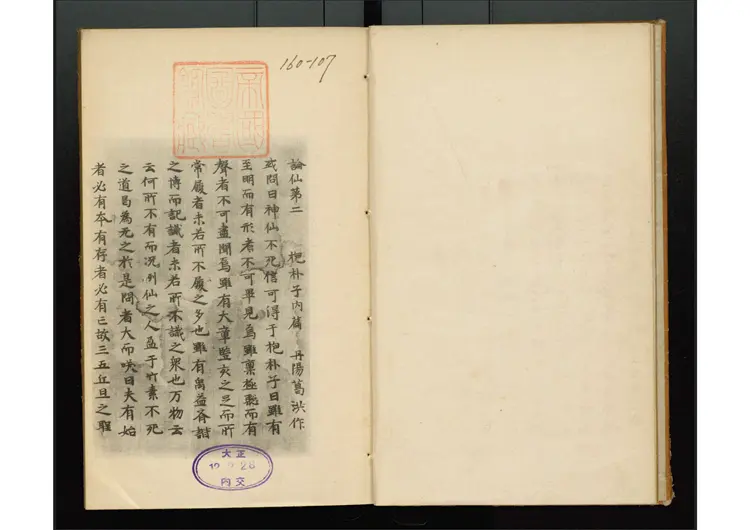 160-107
帝國
圖書
館藏
論仙第二　抱朴子内篇　丹陽葛洪作
或問曰神仙不死信可得于抱朴子曰雖有
至明而有形者不可畢見焉雖稟極聡而有
聲者不可盡聞焉雖有大章豎亥之足而所
常履者未若所不履之多也雖有禹益齊諧
之博而記識者未若所不識之衆也万物云
云何所不有而况列仙之人盈于竹素不死
之道曷為无之於是問者大而咲曰夫有始
者必有卒有存者必有亡故三五丘旦之聖
大正
28
内交